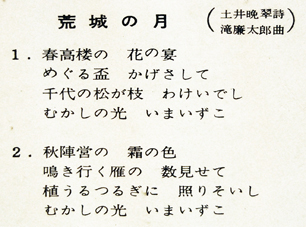 荒城の月
(土井晩翠詩
滝廉太郎曲)
1. 春高楼の 花の宴
めぐる盃 かげさして
千代の松が枝 わけいでし
むかしの光 いまいずこ
2. 秋陣営の 霜の色
鳴き行く雁の 数見せて
植うるつるぎに 照りそいし
むかしの光 いまいずこ